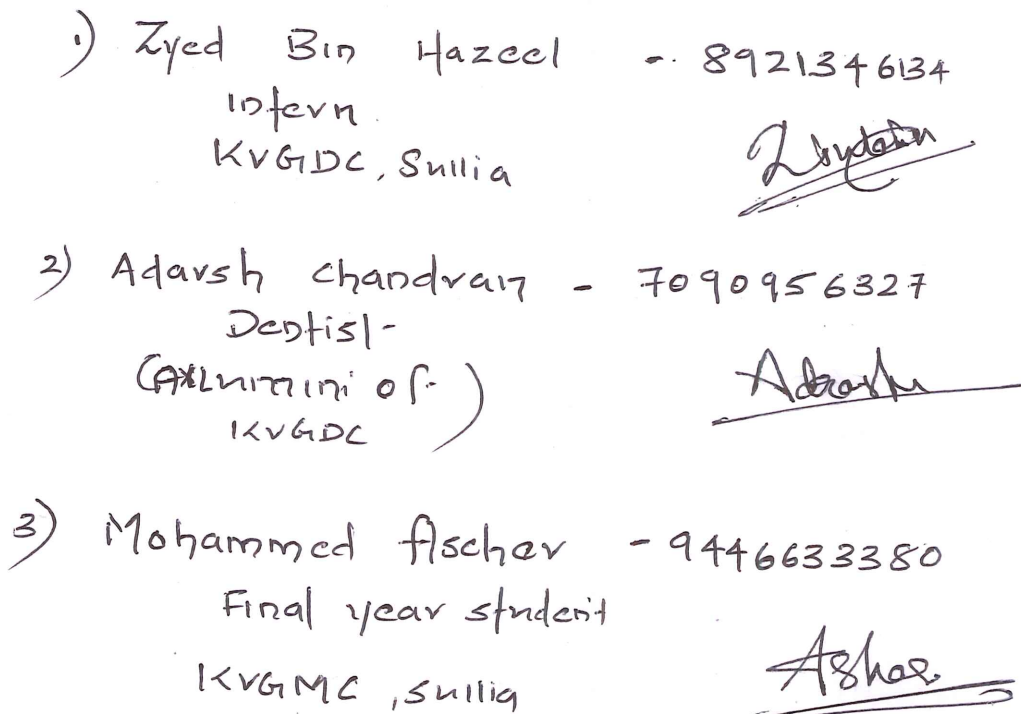 1) Zyed Bin Hazeel - 8921346134
Intern
KVGDC, Sullia
2) Adarsh Chandran - 7090956327
Dentist
(Alumini of)
KVGDC
Adarsh
3) Mohammed Ascher - 9446633380
Final year student
KVGMC, Sullia
Ashar